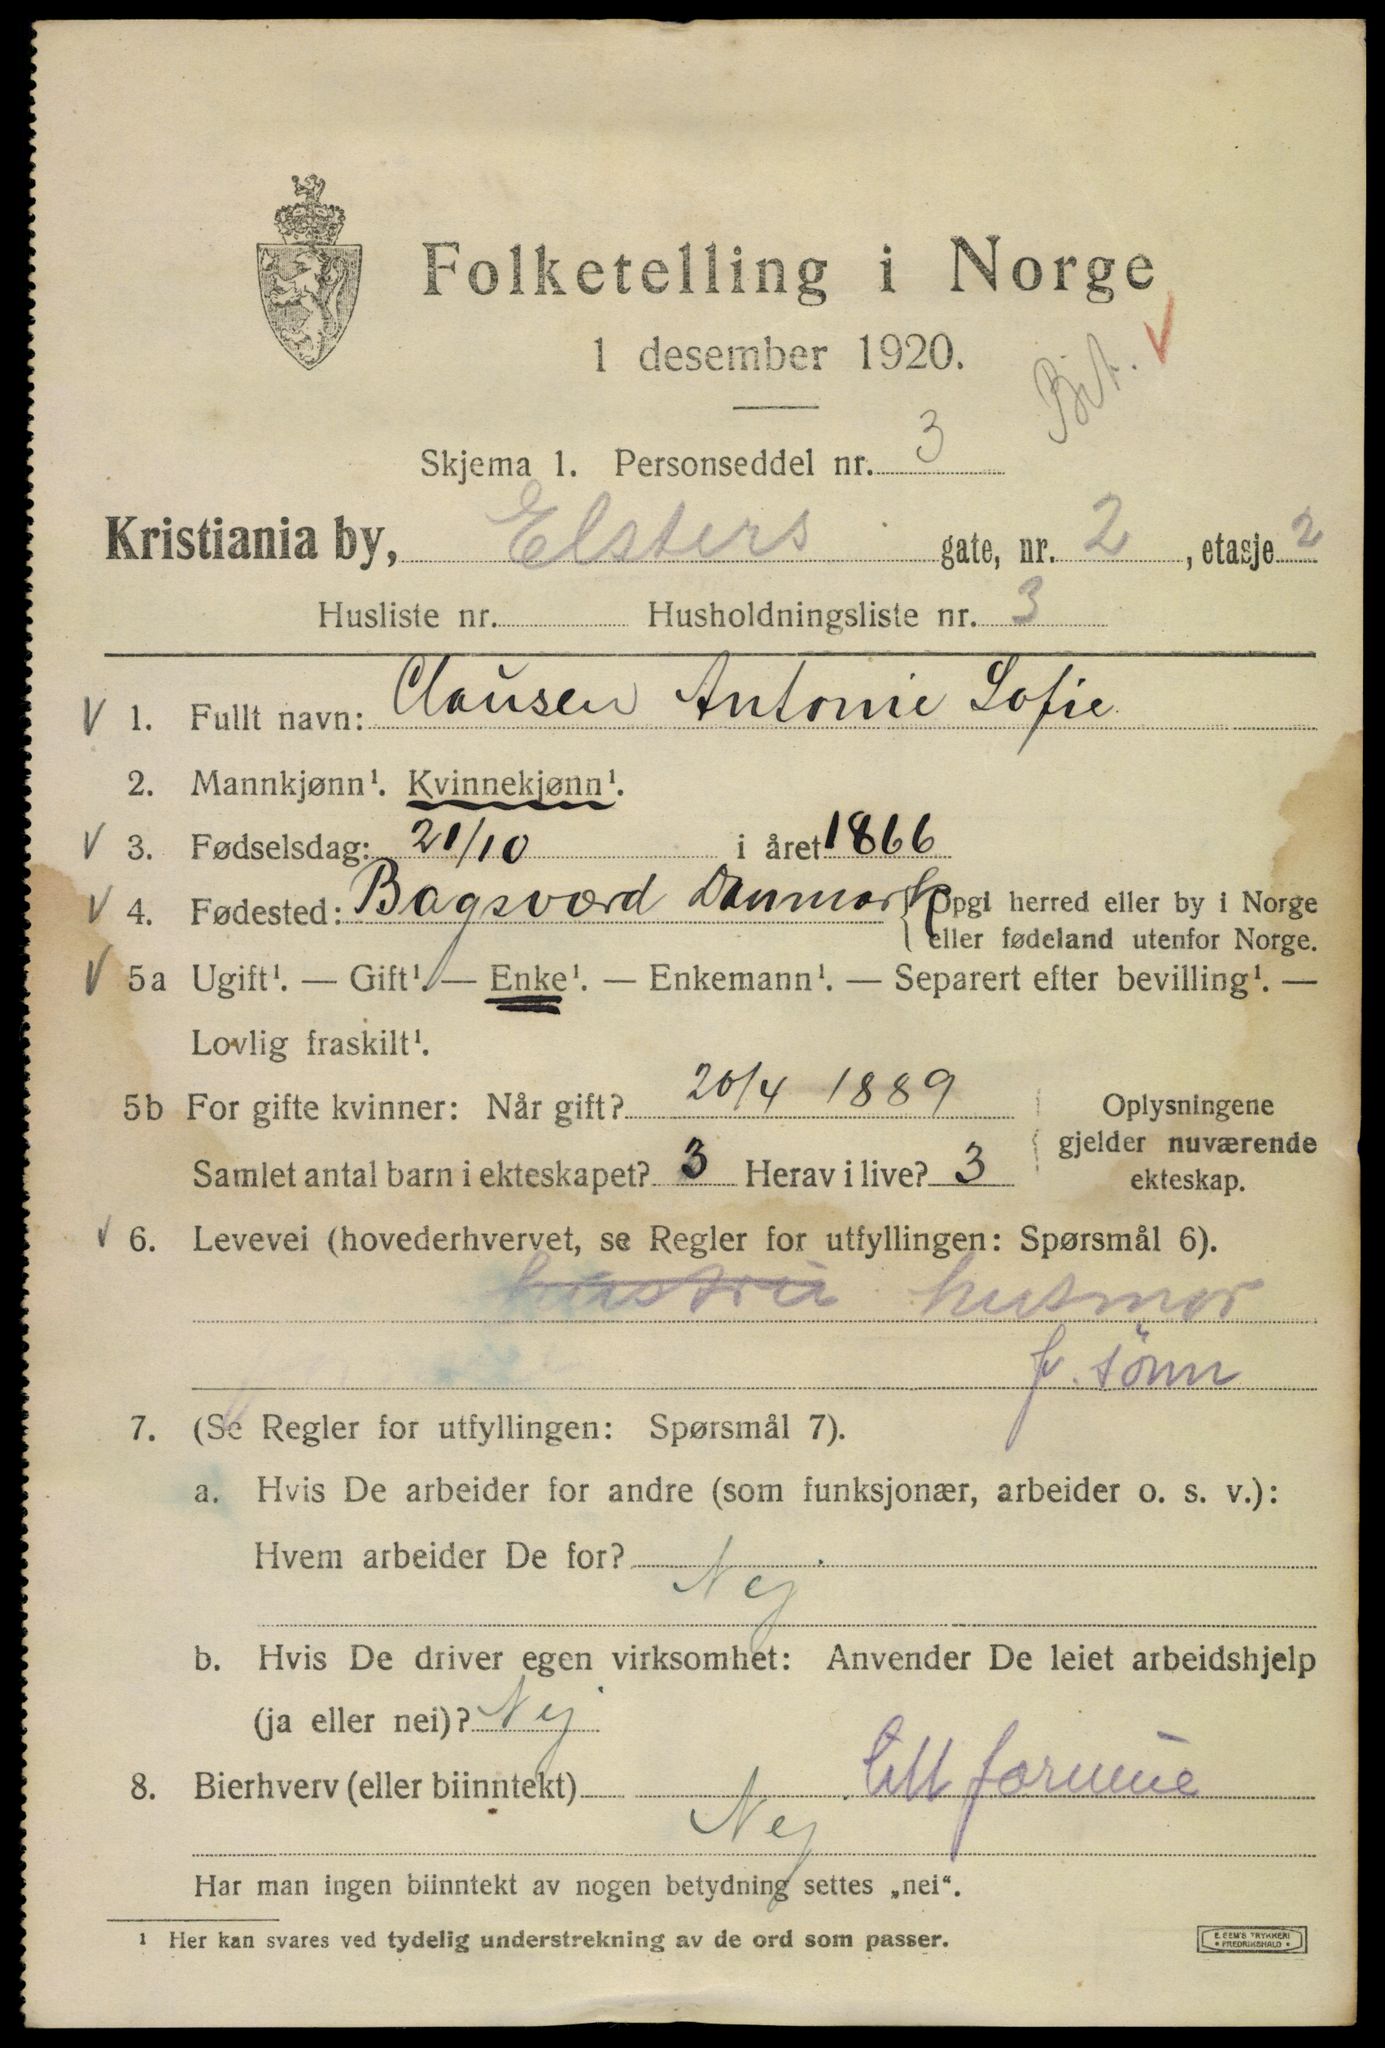 Folketelling i Norge
1 desember 1920.
Skjema 1. Personseddel nr. 3
Kristiania by, Elsters gate, nr. 2, etasje 2
Husliste nr. Husholdningsliste nr. 3
1. Fullt navn: Clausen Antonie Sofie
2. Mannkjønn¹. Kvinnekjønn¹.
3. Fødselsdag: 21/10 i året 1866
4. Fødested: Bagsværd Danmark { Opgi herred eller by i Norge
eller fødeland utenfor Norge.
5a Ugift¹. — Gift¹. — Enke¹. — Enkemann¹. — Separert efter bevilling¹. —
Lovlig fraskilt¹.
5b For gifte kvinner: Når gift? 20/4 1889
Samlet antal barn i ekteskapet? 3 Herav i live? 3
Oplysningene
gjelder nuværende
ekteskap.
6. Levevei (hovederhvervet, se Regler for utfyllingen: Spørsmål 6).
husmor
f. sönn
7. (Se Regler for utfyllingen: Spørsmål 7).
a. Hvis De arbeider for andre (som funksjonær, arbeider o. s. v.):
Hvem arbeider De for?
Nej
b. Hvis De driver egen virksomhet: Anvender De leiet arbeidshjelp
(ja eller nei)? Nej
8. Bierhverv (eller biinntekt) litt formue
Nej
Har man ingen biinntekt av nogen betydning settes „nei“.
¹ Her kan svares ved tydelig understrekning av de ord som passer.
E. SEM'S TRYKKERI
• FREDRIKSHALD •